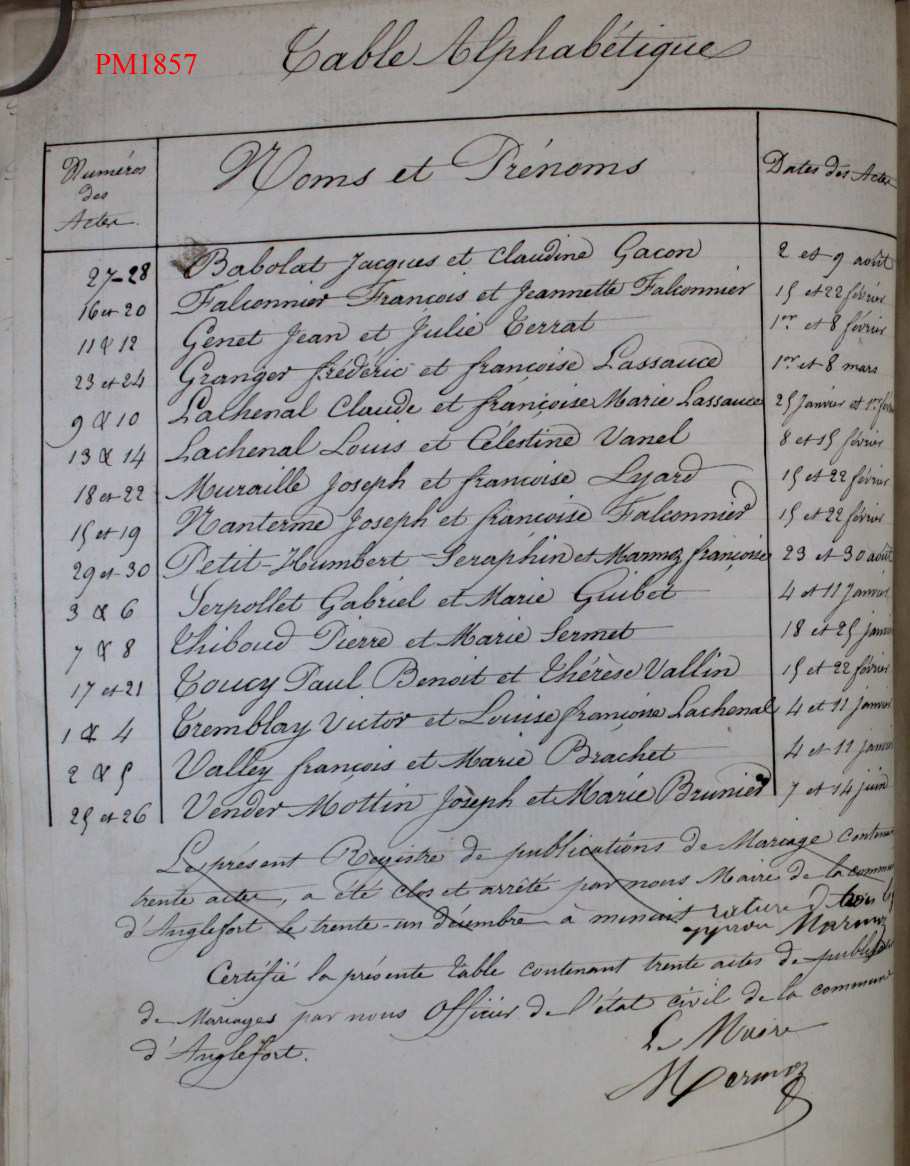 PM1857
Table Alphabétique
Numéros des Actes Noms et Prénoms Dates des Actes
27-28 Babolat Jacques et Claudine Gacon 2 et 9 août
16 et 20 Falconnier François et Jeannette Falconnier 15 et 22 février
11 & 12 Genet Jean et Julie Terrat 1er et 8 février
23 et 24 Granger frédéric et françoise Lassauce 1er et 8 mars
9 & 10 Lachenal Claude et françoise Marie Lassauce 25 Janvier et 1er
13 & 14 Lachenal Louis et Célestine Vanel 8 et 15 février
18 et 22 Muraille Joseph et françoise Lyard 15 et 22 février
15 et 19 Nanterme Joseph et françoise Falconnier 15 et 22 février
29 et 30 Petit-Humbert Seraphin et Marmoz françoise 23 et 30 août
3 & 6 Serpollet Gabriel et Marie Guibet 4 et 11 janvier
7 & 8 Thiboud Pierre et Marie Sermet 18 et 25 janvi
17 et 21 Toucy Paul Benoit et Thérèse Vallin 15 et 22 février
1 & 4 Tremblay Victor et Louise françoise Lachenal 4 et 11 janvi
2 & 5 Valley françois et Marie Brachet 4 et 11 janvi
25 et 26 Vender Mottin Joseph et Marie Brunier 7 et 14 juin
Le présent Registre de publications de Mariage contenant
trente actes, a été clos et arrêté par nous Maire de la commune
d'Anglefort le trente-un décembre à minuit rature d
Marmoz
Certifié la présente table contenant trente actes de publi
de Mariages par nous Officier de l'état civil de la commune
d'Anglefort.
Le Maire
Marmoz